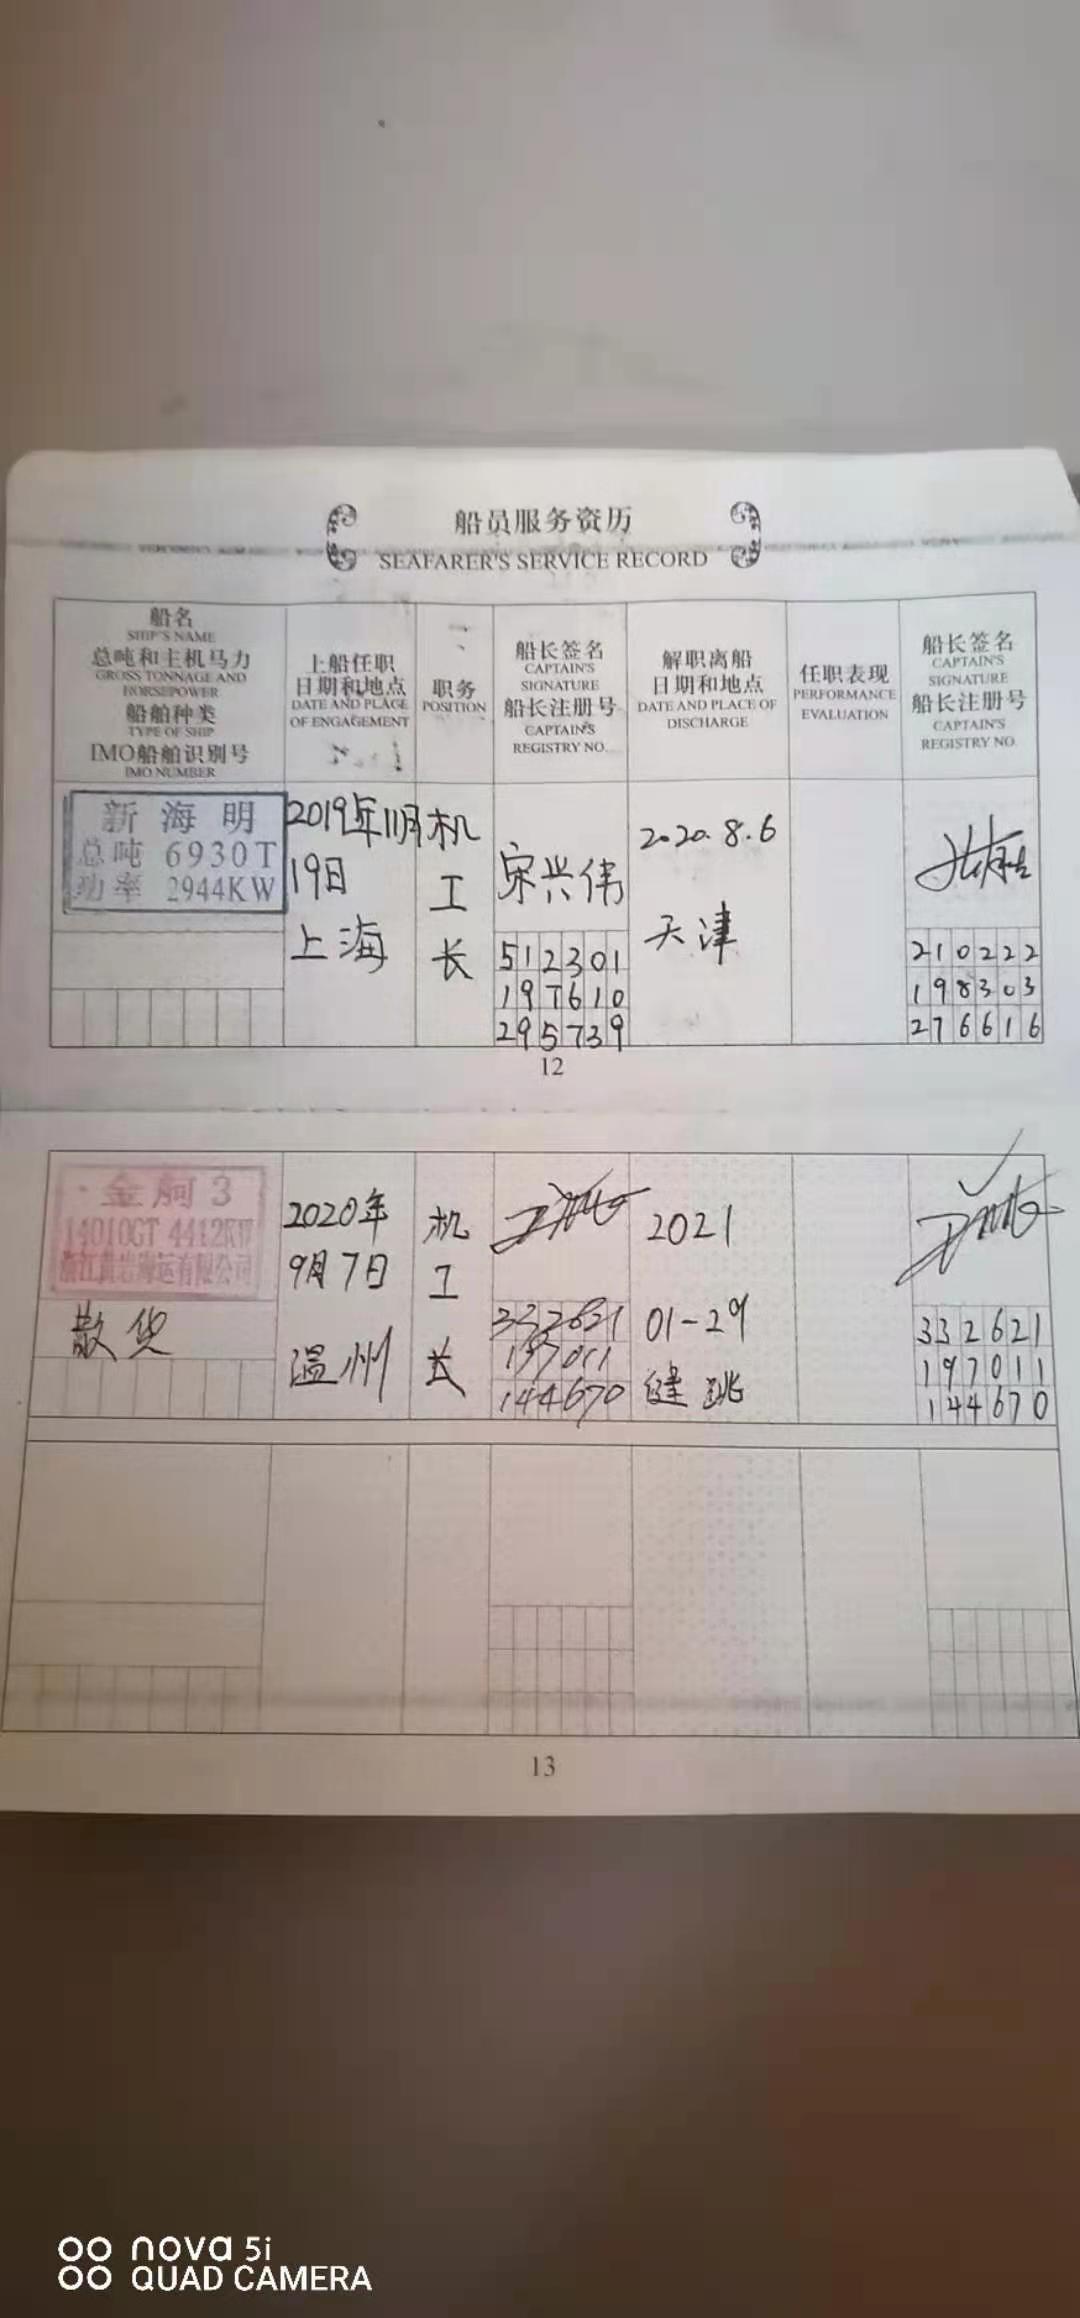 船员服务资历
SEAFARER'S SERVICE RECORD
船名
SHIP'S NAME
总吨和主机马力
GROSS TONNAGE AND
HORSEPOWER
船舶种类
TYPE OF SHIP
IMO船舶识别号
IMO NUMBER
上船任职
日期和地点
DATE AND PLACE
OF ENGAGEMENT
职务
POSITION
船长签名
CAPTAIN'S
SIGNATURE
船长注册号
CAPTAIN'S
REGISTRY NO.
解职离船
日期和地点
DATE AND PLACE OF
DISCHARGE
任职表现
PERFORMANCE
EVALUATION
船长签名
CAPTAIN'S
SIGNATURE
船长注册号
CAPTAIN'S
REGISTRY NO.
新海明
总吨 6930T
功率 2944KW
2019年11月
19日
上海
机
工
长
宋兴伟
512301
197610
295739
2020.8.6
天津
210222
198303
276616
12
金舸3
14010GT 4412KW
浙江黄岩海运有限公司
散货
2020年
9月7日
温州
机
工
长
332621
197011
144670
2021
01-29
健跳
332621
197011
144670
13
nova 5i
QUAD CAMERA